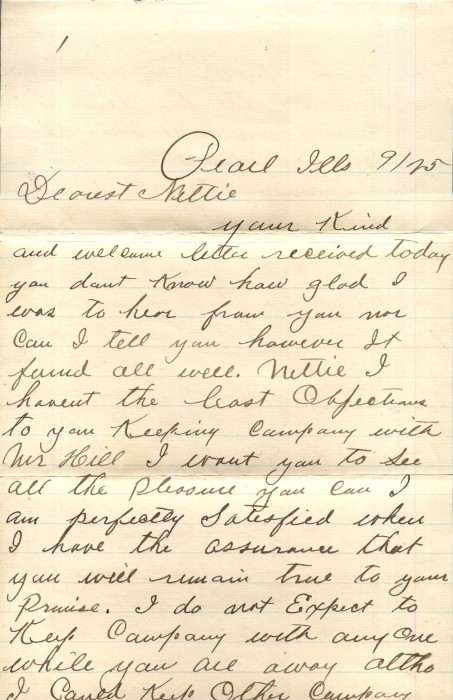 1
Pearl Ills 9/25
Dearest Nettie
your Kind
and welcome letter received today
you dont Know how glad I
was to hear from you nor
Can I tell you however It
found all well. Nettie I
havent the least Objections
to you Keeping Company with
Mr Hill I want you to see
all the pleasure you can I
am perfectly Satisfied when
I have the assurance that
you will remain true to your
Promise. I do not Expect to
Keep Company with any One
while you are away altho
I Could Keep Other Company